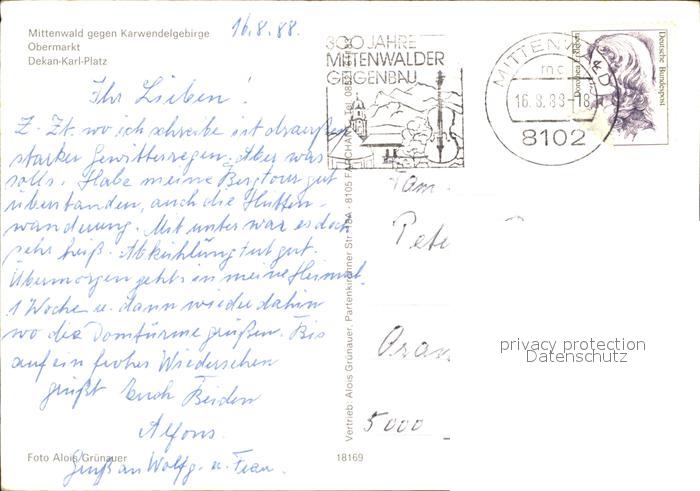 Mittenwald gegen Karwendelgebirge
Obermarkt
Dekan-Karl-Platz
16.8.88.
Ihr Lieben!
Z. Zt. wo ich schreibe ist draußen
starker Gewitterregen. Aber was
solls. Habe meine Bergtour gut
überstanden, auch die Hütten-
wanderung. Mitunter war es doch
sehr heiß. Abkühlung tut gut.
Übermorgen gehts in meine Heimat
1 Woche u. dann wieder dahin
wo die Domtürme grüßen. Bis
auf ein frohes Wiedersehen
grüßt Euch Beiden
Alfons.
Gruß an Wolfg. u. Frau.
Foto Alois Grünauer
18169
Vertrieb: Alois Grünauer, Partenkirchner Str. 18A · 8105 FARCHANT · Tel.
300 JAHRE
MITTENWALDER
GEIGENBAU
MITTENWALD
mc
16.8.88-18
8102
Deutsche Bundespost
Fam.
Pete
5000
privacy protection
Datenschutz